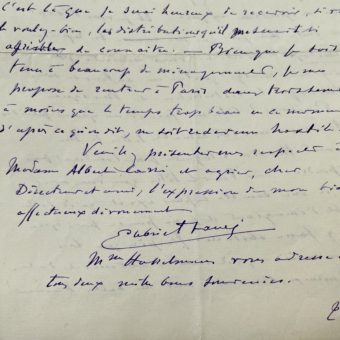 C'est là que je serai heureux de recevoir, si vous
le voulez bien, les distributions qu'il me serait si
agréable de connaître. — Bien que je sois
tenu à beaucoup de ménagements, je me
propose de rentrer à Paris dans trois semaines
à moins que le temps trop beau en ce moment
d'après ce qu'on dit, ne soit redevenu hostile.
Veuillez présenter mes respects à
Madame Albert Carré et agréer, cher
Directeur et ami, l'expression de mon bien
affectueux dévouement
Gabriel Fauré
Mme Hasselmans vous adresse à
tous deux mille bons souvenirs.